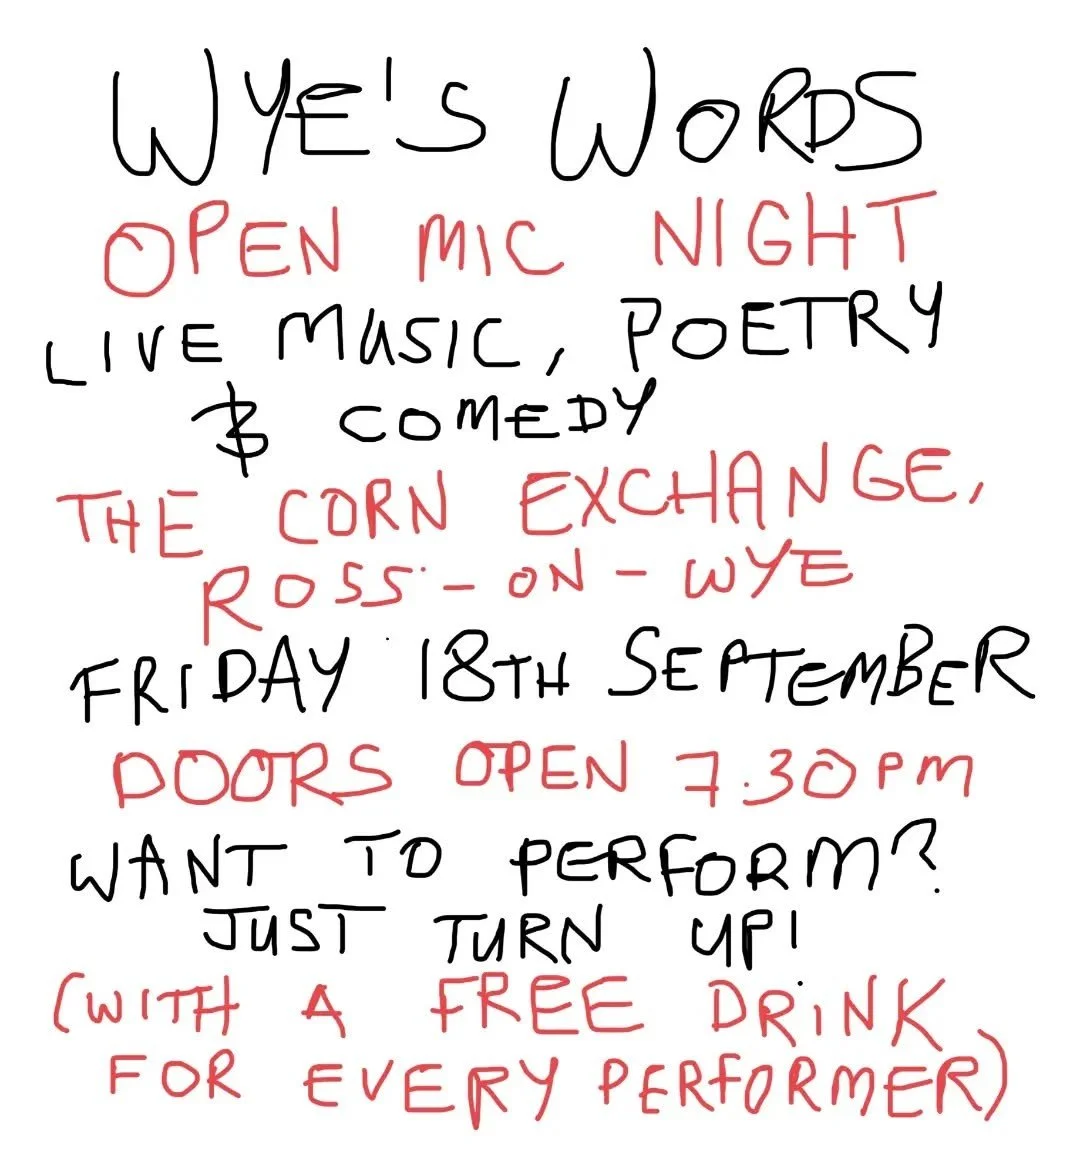 WYE'S WORDS
OPEN MIC NIGHT
LIVE MUSIC, POETRY
& COMEDY
THE CORN EXCHANGE,
ROSS-ON-WYE
FRIDAY 18TH SEPTEMBER
DOORS OPEN 7.30PM
WANT TO PERFORM?
JUST TURN UP!
(WITH A FREE DRINK
FOR EVERY PERFORMER)